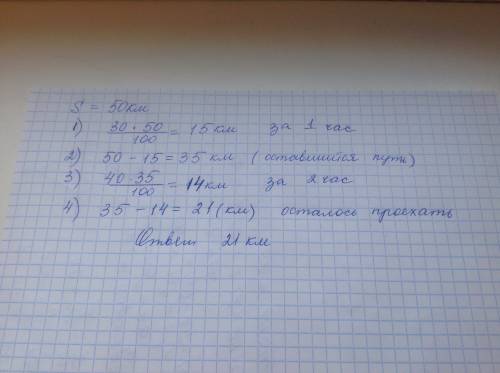 S = 50км
1) 30 · 50 / 100 = 15 км за 1 час
2) 50 - 15 = 35 км (оставшийся путь)
3) 40 · 35 / 100 = 14 км за 2 час
4) 35 - 14 = 21 (км) осталось проехать
Ответ 21 км